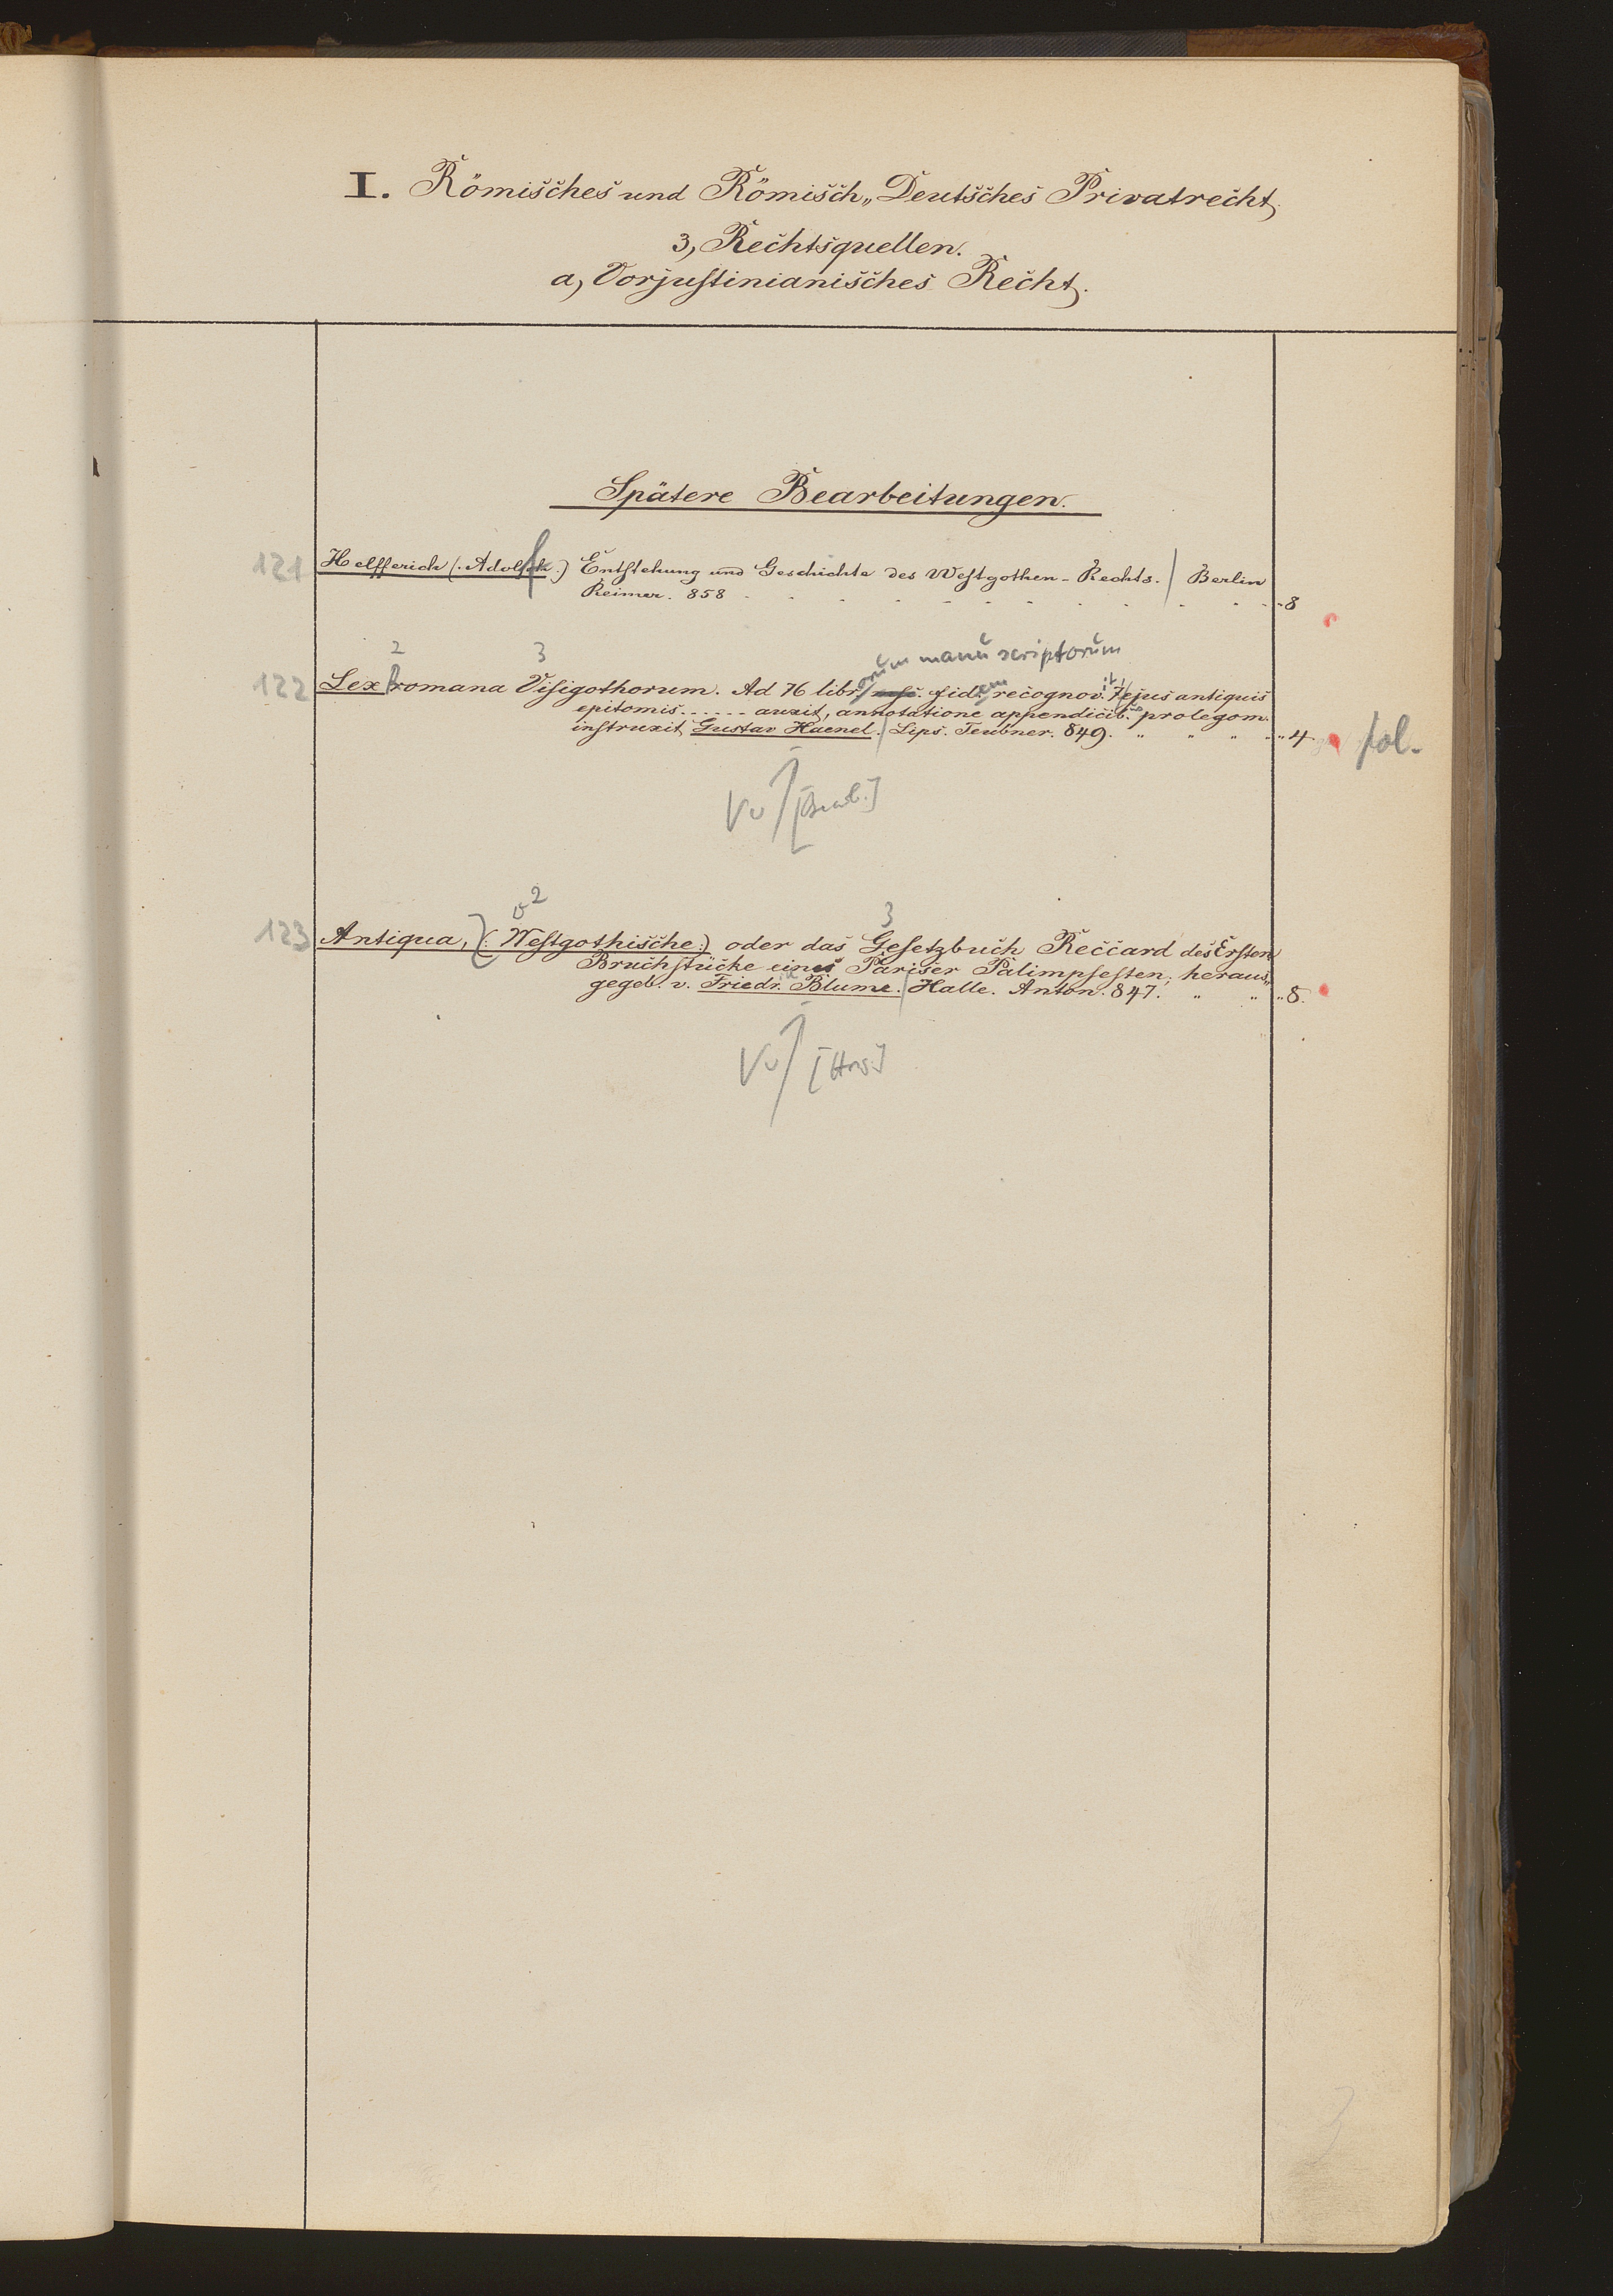 I. Römisches und Römisch„Deutsches Privatrecht,
3, Rechtsquellen.
a, Vorjustinianisches Recht.
Spätere Bearbeitungen.
121 Helfferich (. Adolph .) Entstehung und Geschichte des Westgothen-Rechts. | Berlin
Reimer. 858 8
2 3 orum manu scriptorum
122 Lex romana Visigothorum. Ad 76 libr. mss. fid. em recognov. it, ejus antiquis
epitomis. . . . . . auxit, annotatione appendicib. prolegom.
instruxit Gustav Haenel. | Lips. Teubner. 849. " " " " 4 fol.
Vu
2 3
123 Antiqua, (: Westgothische :) oder das Gesetzbuch Reccard des Ersten
Bruchstücke eines Pariser Palimpsesten; heraus„
gegeb. v. Friedr. Blume. | Halle. Anton. 847. " " " 8.
Vu [Hrsg.]